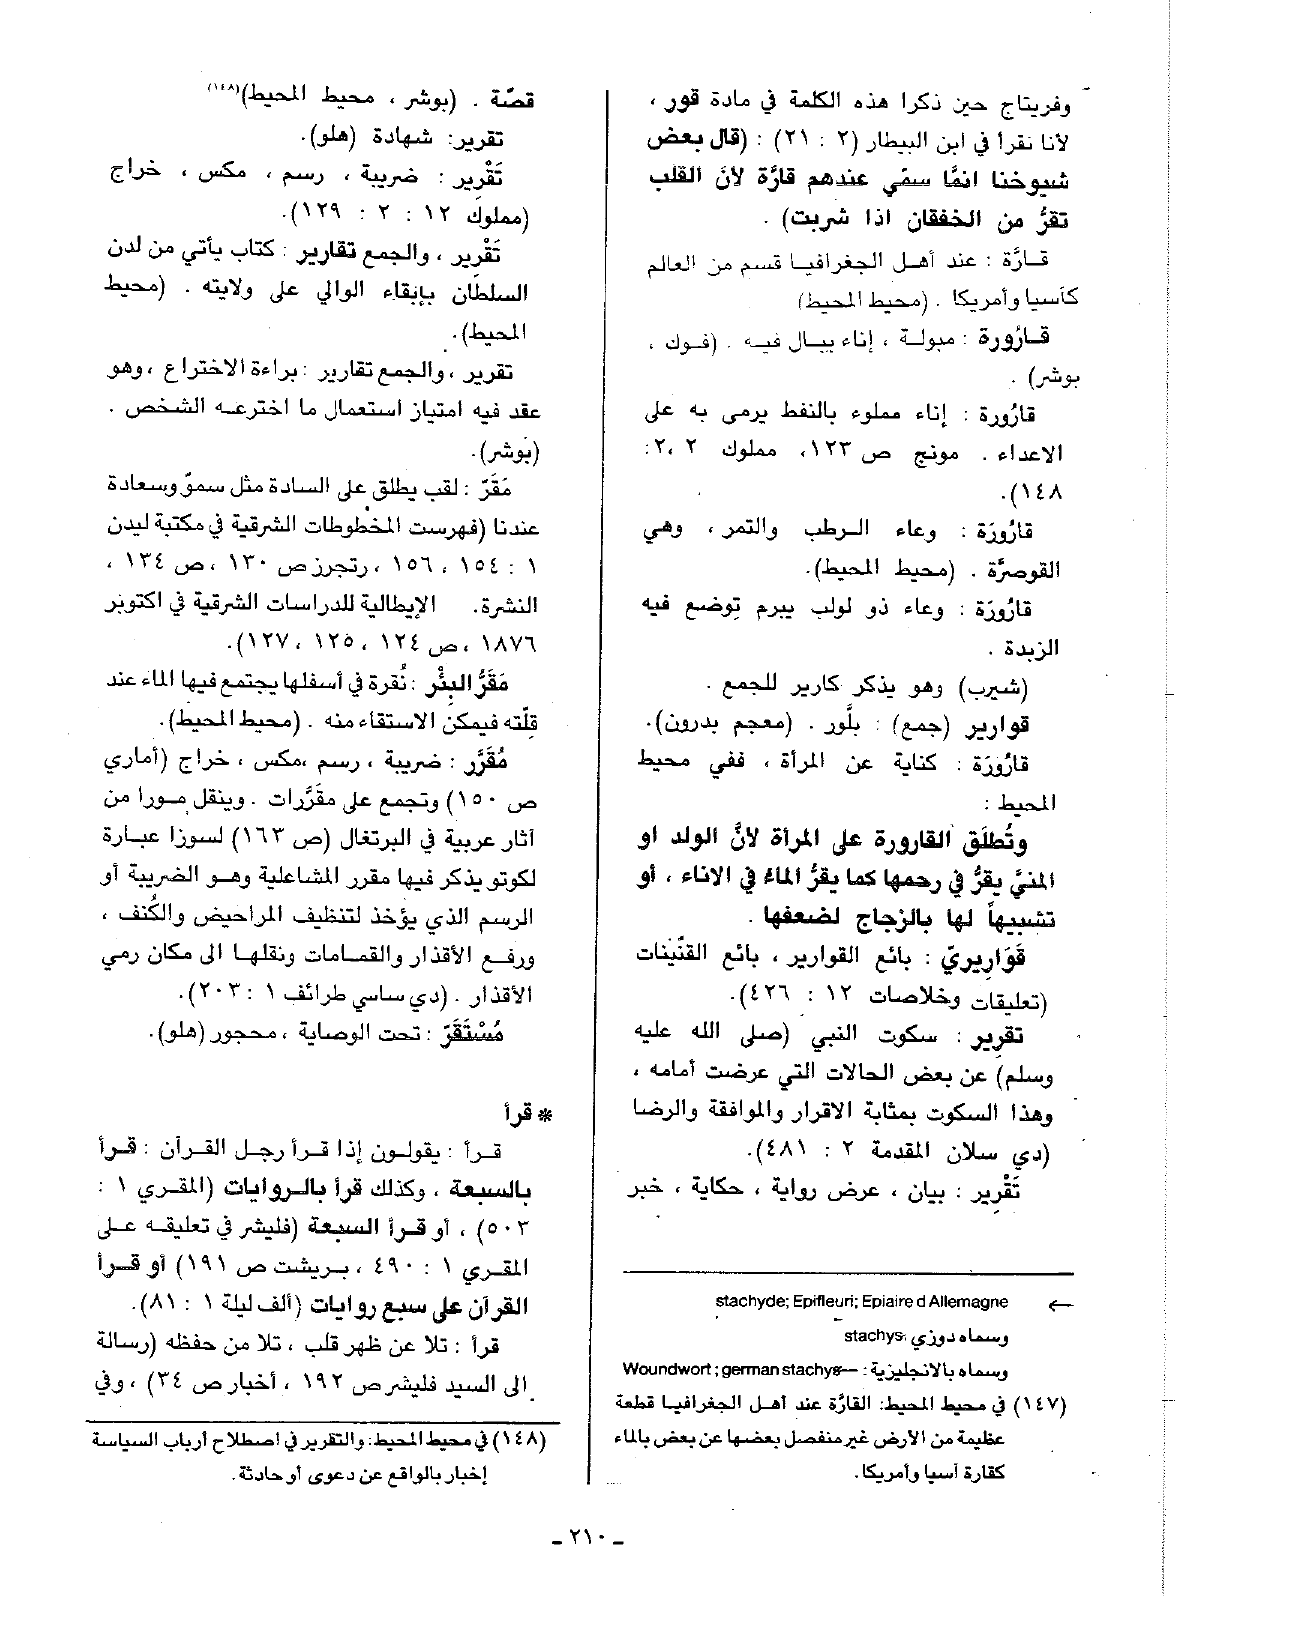 وفريتاج حين ذكرا هذه الكلمة في مادة قور ،
لأنا نقرأ في ابن البيطار (٢ : ٢١) : (قال بعض
شيوخنا انمّا سمّي عندهم قارّة لأن القلب
تقرُّ من الخفقان اذا شربت) .
قارَّة : عند أهل الجغرافيا قسم من العالم
كآسيا وأمريكا . (محيط المحيط)
قارُورة : مبولة ، إناء يبال فيه . (فوك ،
بوشر) .
قارُورة : إناء مملوء بالنفط يرمى به على
الاعداء . مونج ص ١٢٣، مملوك ٢ ،٢:
١٤٨).
قارُورَة : وعاء الرطب والتمر ، وهي
القوصرَّة . (محيط المحيط).
قارُورَة : وعاء ذو لولب يبرم توضع فيه
الزبدة .
(شيرب) وهو يذكر كارير للجمع .
قوارير (جمع) : بلّور . (معجم بدرون).
قارُورَة : كناية عن المرأة ، ففي محيط
المحيط :
وتُطلَق القارورة على المرأة لانَّ الولد او
المنيَّ يقرُّ في رحمها كما يقرُّ الماءُ في الاناء ، أو
تشبيهاً لها بالزجاج لضعفها .
قَوَاريريّ : بائع القوارير ، بائع القنّينات
(تعليقات وخلاصات ١٢ : ٤٢٦).
تقرير : سكوت النبي (صلى الله عليه
وسلم) عن بعض الحالات التي عرضت أمامه ،
وهذا السكوت بمثابة الاقرار والموافقة والرضا
(دي سلان المقدمة ٢ : ٤٨١).
تَقْرير : بيان ، عرض رواية ، حكاية ، خبر
← stachyde; Epifleuri; Epiaire d Allemagne
وسماه دوزي stachys
وسماه بالانجليزية : — Woundwort ; german stachys
(١٤٧) في محيط المحيط: القارّة عند أهل الجغرافيا قطعة
عظيمة من الأرض غير منفصل بعضها عن بعض بالماء
كقارة آسيا وأمريكا.
قصّة . (بوشر ، محيط المحيط)(١٤٨)
تقرير: شهادة (هلو).
تَقْرير : ضريبة ، رسم ، مكس ، خراج
(مملوك ١٢ : ٢ : ١٢٩).
تَقْرير ، والجمع تقارير : كتاب يأتي من لدن
السلطان بإبقاء الوالي على ولايته . (محيط
المحيط).
تقرير ، والجمع تقارير : براءة الاختراع ، وهو
عقد فيه امتياز استعمال ما اخترعه الشخص .
(بوشر).
مَقَرّ : لقب يطلق على السادة مثل سموّ وسعادة
عندنا (فهرست المخطوطات الشرقية في مكتبة ليدن
١ : ١٥٤ ، ١٥٦ ، رتجرز ص ١٣٠ ، ص ١٣٤ ،
النشرة. الإيطالية للدراسات الشرقية في اكتوبر
١٨٧٦ ، ص ١٢٤ ، ١٢٥ ، ١٢٧).
مَقَرُّ البئْر : نُقرة في أسفلها يجتمع فيها الماء عند
قلّته فيمكن الاستقاء منه . (محيط المحيط).
مُقَرَّر : ضريبة ، رسم ،مكس ، خراج (أماري
ص ١٥٠) وتجمع على مقَرَّرات . وينقل مورا من
آثار عربية في البرتغال (ص ١٦٣) لسوزا عبارة
لكوتو يذكر فيها مقرر المشاعلية وهو الضريبة أو
الرسم الذي يؤخذ لتنظيف المراحيض والكُنف ،
ورفع الأقذار والقمامات ونقلها الى مكان رمي
الأقذار . (دي ساسي طرائف ١ : ٢٠٣).
مُسْتَقَرّ : تحت الوصاية ، محجور (هلو).
* قرأ
قرأ : يقولون إذا قرأ رجل القرآن : قرأ
بالسبعة ، وكذلك قرأ بالروايات (المقري ١ :
٥٠٣) ، أو قرأ السبعة (فليشر في تعليقه على
المقري ١ : ٤٩٠ ، بريشت ص ١٩١) أو قرأ
القرآن على سبع روايات (ألف ليلة ١ : ٨١).
قرأ : تلا عن ظهر قلب ، تلا من حفظه (رسالة
الى السيد فليشر ص ١٩٢ ، أخبار ص ٣٤) ، وفي
(١٤٨) في محيط المحيط: والتقرير في اصطلاح أرباب السياسة
إخبار بالواقع عن دعوى أو حادثة.
ـ ٢١٠ ـ